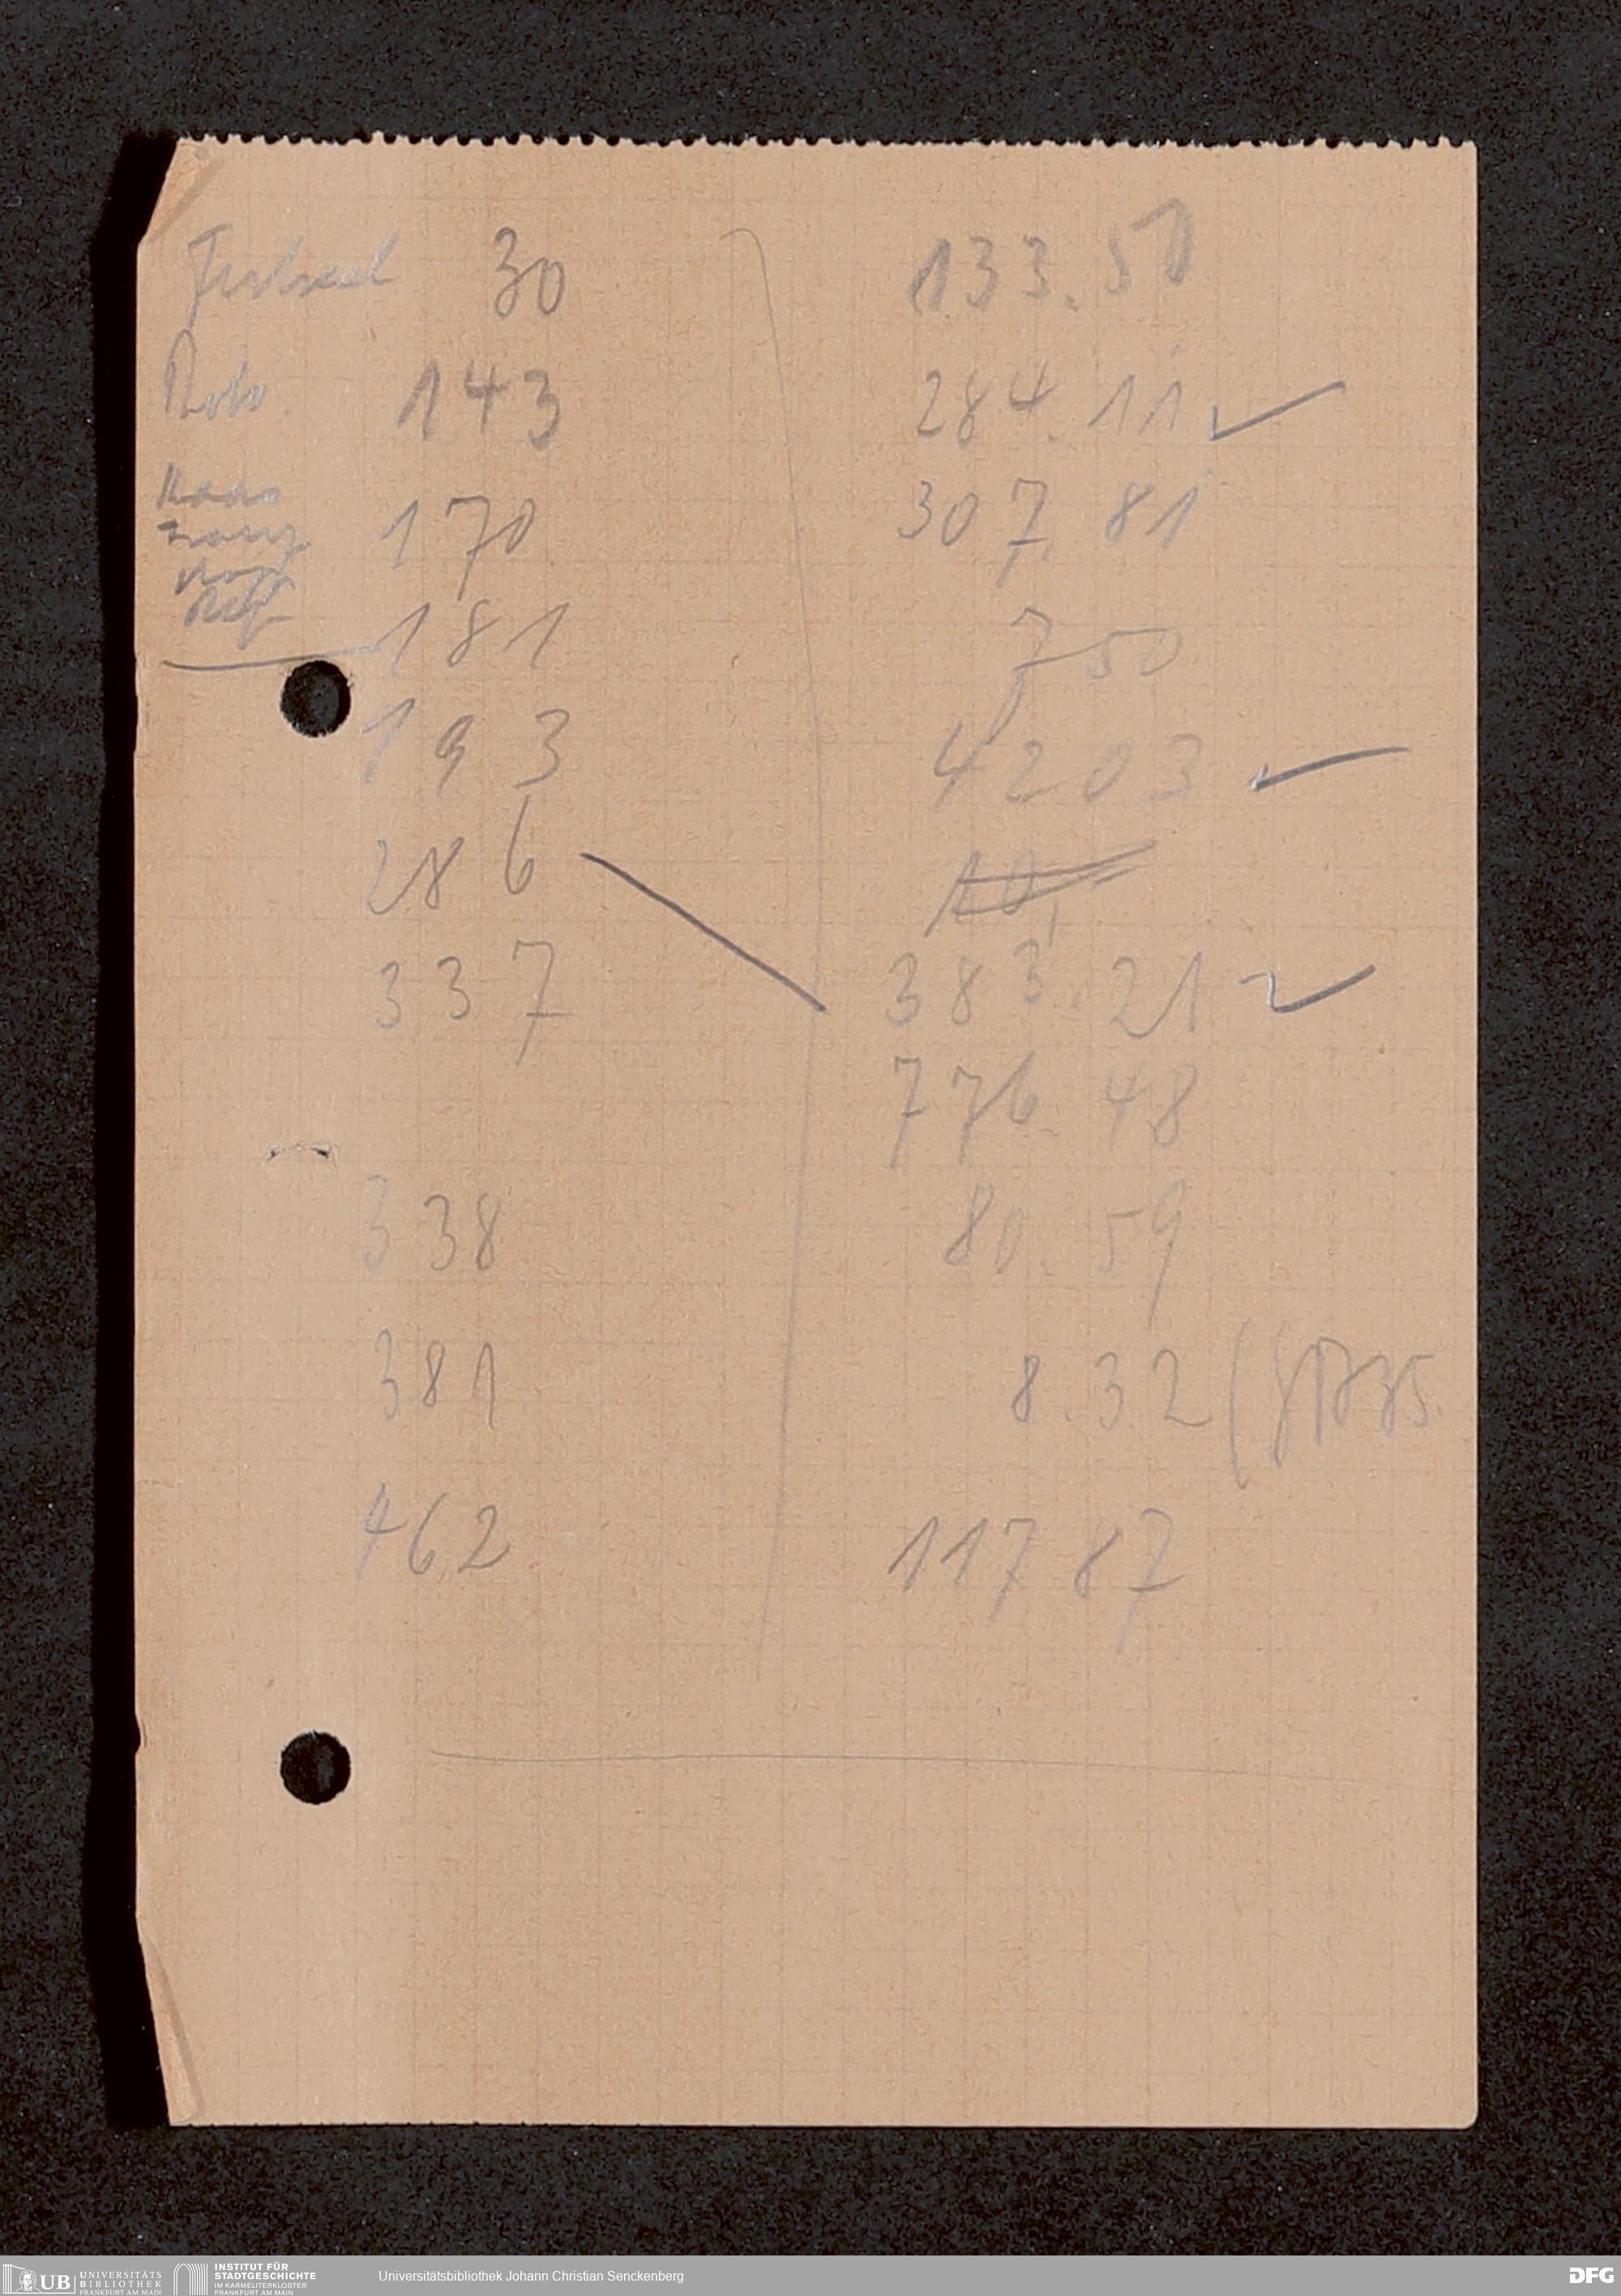 30 133.50
143 284.11 ✓
170 307.81
181 750
193 4203 ✓
286
337 383.21 ✓
776.48
338 80.59
381 8.32
462 117 87
UB UNIVERSITÄTS
BIBLIOTHEK
FRANKFURT AM MAIN
INSTITUT FÜR
STADTGESCHICHTE
IM KARMELITERKLOSTER
FRANKFURT AM MAIN
Universitätsbibliothek Johann Christian Senckenberg
DFG